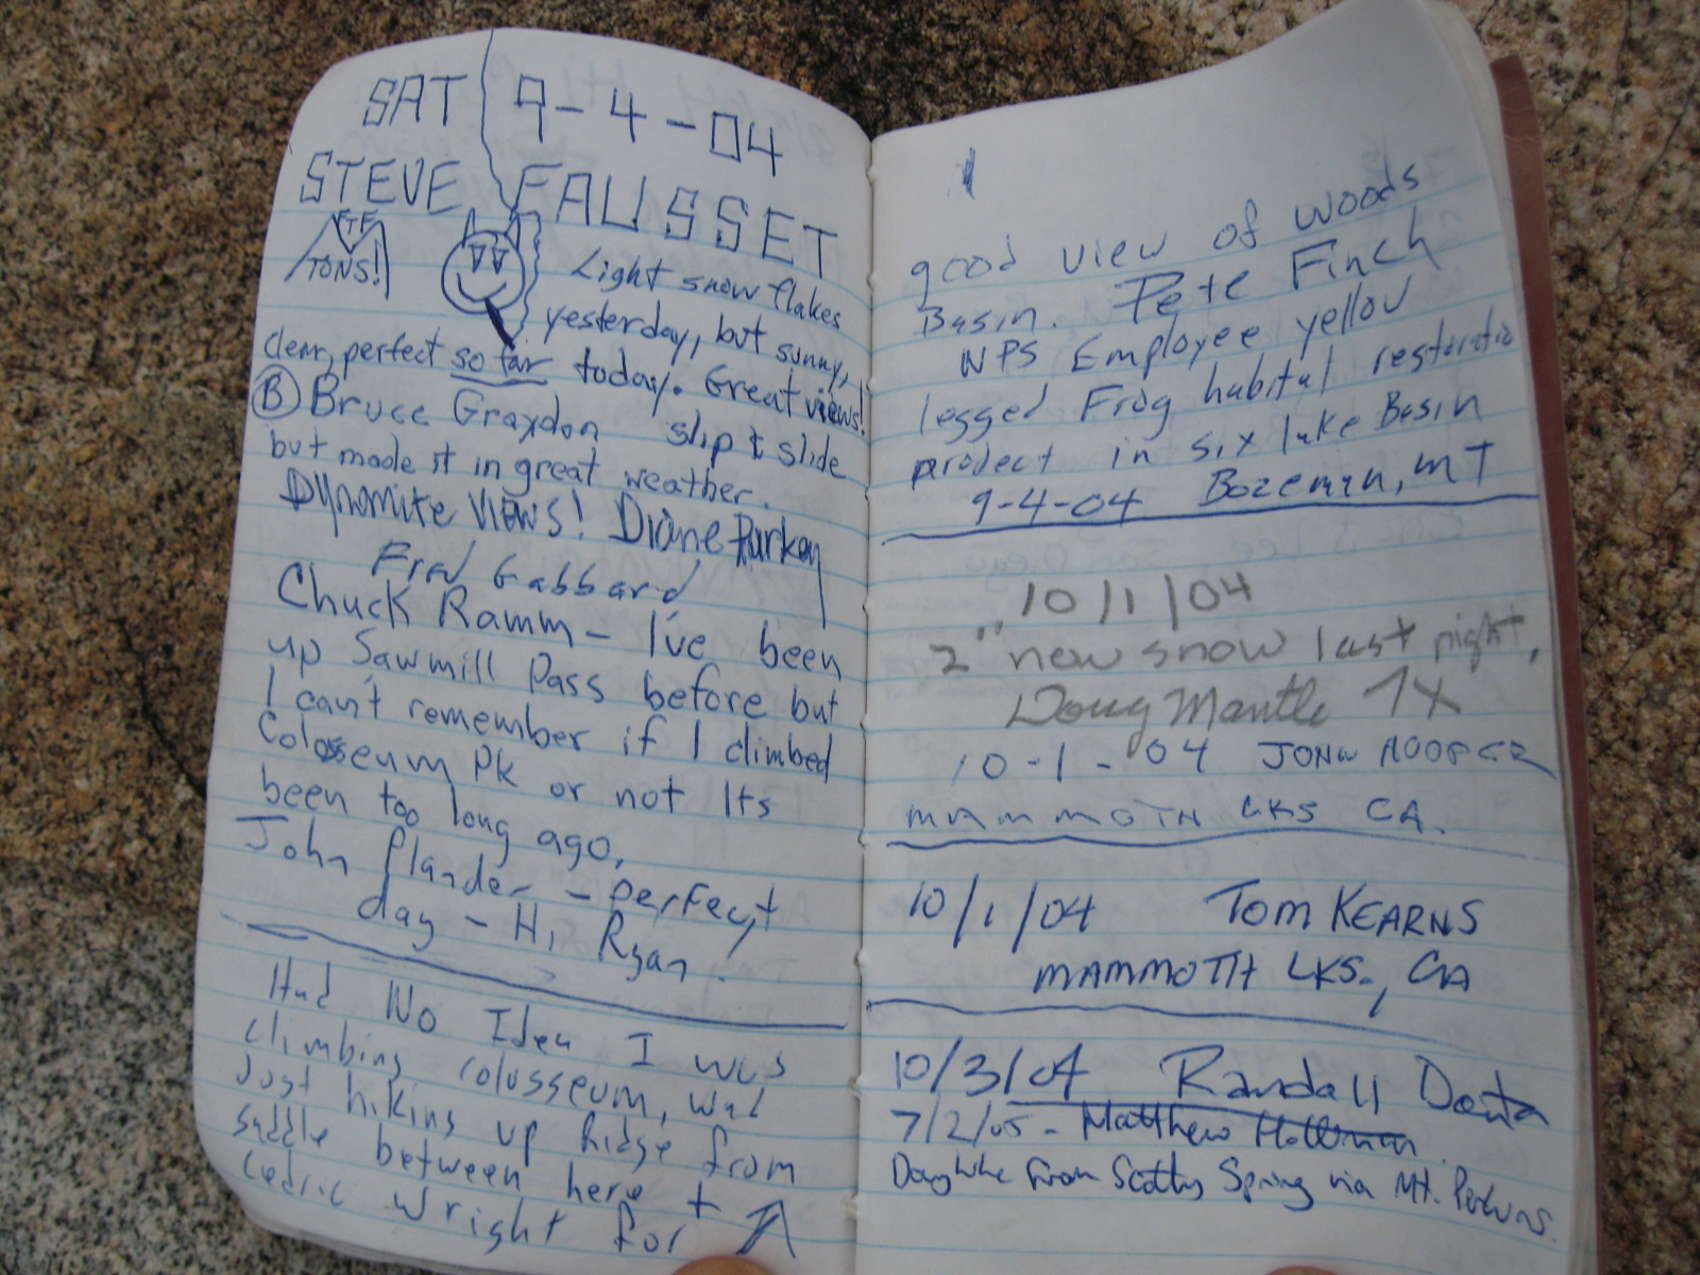 SAT 9-4-04
STEVE FAUSSET
TONS!
Light snow flakes
yesterday, but sunny,
clear, perfect so far today. Great views!
B Bruce Graydon slip & slide
but made it in great weather.
Dynomite Views! Diane
Fred Gabbard
Chuck Ramm - I've been
up Sawmill Pass before but
I can't remember if I climbed
Coloseum Pk or not Its
been too long ago,
John flander - perfect
day - Hi Ryan!
Had No Idea I was
climbing colosseum, was
Just hiking up Ridge from
saddle between here +
Cedric Wright for
A
good view of woods
Basin. Pete Finch
NPS Employee yellow
legged Frog habitat restoratio
project in six lake Basin
9-4-04 Bozeman, MT
10/1/04
2" new snow last night,
Doug Mantle 7X
10-1-04 JOHN HOOPER
MAMMOTH LKS CA.
10/1/04 TOM KEARNS
MAMMOTH LKS., CA
10/3/04 Randall
7/2/05 - Matthew
Dayhike from Scotty Spring via Mt. Perkins.